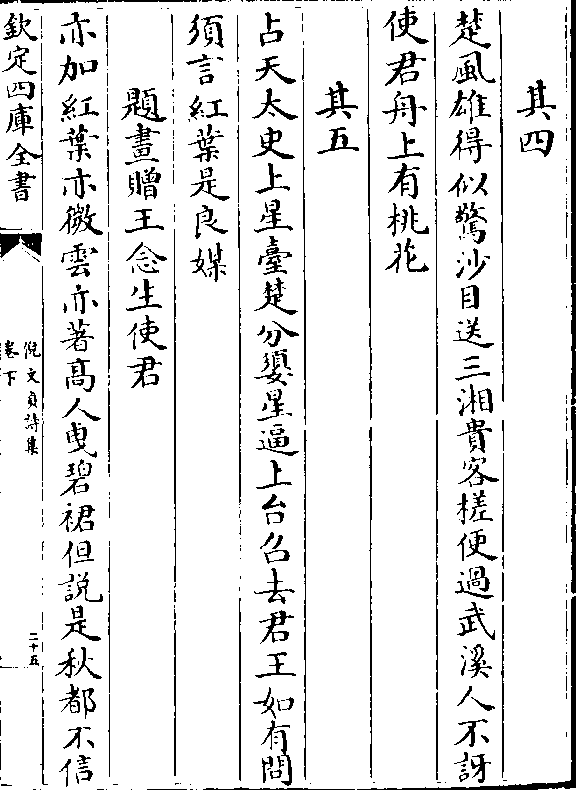 其四
楚風雄得似驚沙目送三湘貴客槎便過武溪人不訝
使君舟上有桃花
其五
占天太史上星臺楚分婺星逼上台召去君王如有問
須言紅葉是良媒
題畫贈王念生使君
亦加紅葉亦微雲亦著高人曳碧裙但説是秋都不信
欽定四庫全書
倪文貞詩集
卷下
二十五